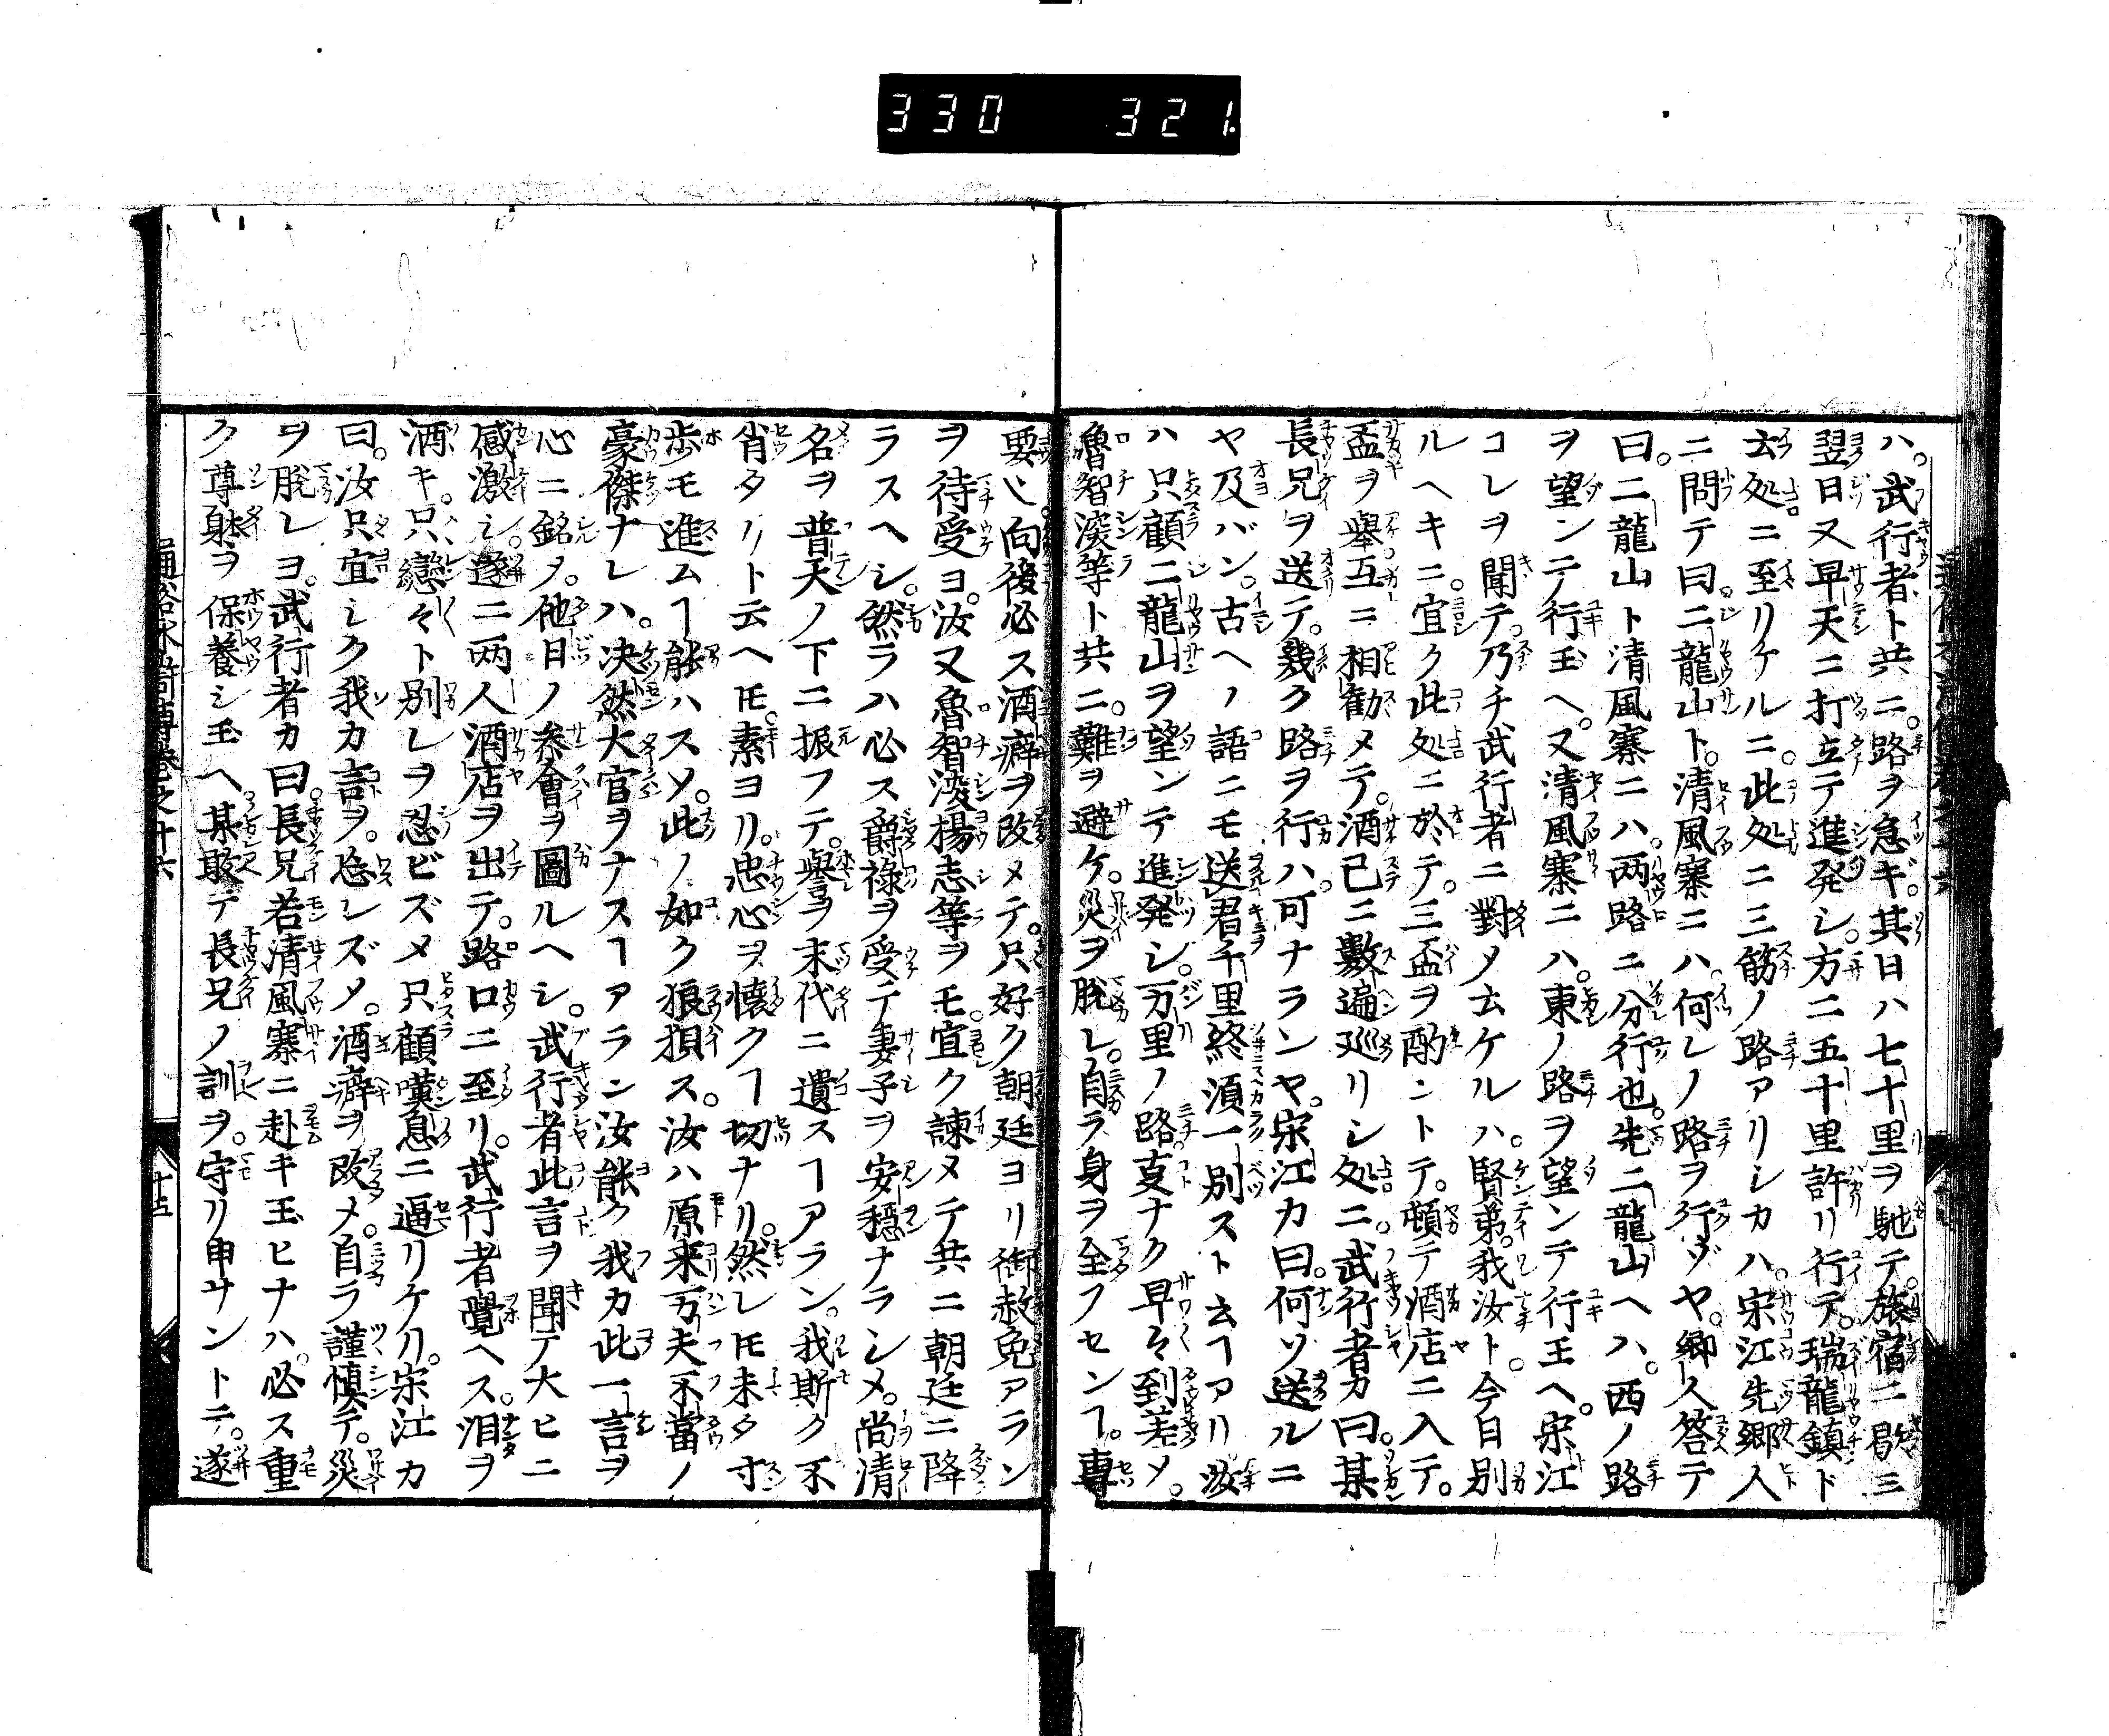 330 321.
ハ。武行者ト共ニ。路ヲ急ギ。其日ハ七十里ヲ馳テ。旅宿ニ歇ミ
翌日又早天ニ打立テ進発シ。方ニ五十里許リ行テ。瑞龍鎮ト
云処ニ至リケルニ。此処ニ三筋ノ路アリシカハ。宋江先郷人
ニ問テ曰。二龍山ト。清風寨ニハ。何レノ路ヲ行ヅヤ。郷人答テ
曰。二龍山ト清風寨ニハ。两路ニ分行也。先二龍山ヘハ。西ノ路
ヲ望ンテ行玉ヘ。又清風寨ニハ。東ノ路ヲ望ンテ行玉ヘ。宋江
コレヲ聞テ。乃チ武行者ニ對メ云ケルハ。賢弟。我汝ト。今日別
ルヘキニ。宜ク此処ニ於テ。三盃ヲ酌ントテ。頓テ酒店ニ入テ。
盃ヲ舉互ニ相勧メテ。酒已ニ數遍廵リシ処ニ。武行者カ曰。某
長兄ヲ送テ。幾ク路ヲ行ハ。可ナランヤ。宋江カ曰。何ソ送ルニ
ヤ及バン。古ヘノ語ニモ送君千里終湏一別スト云ヿアリ。汝
ハ只顧二龍山ヲ望ンテ進発シ。万里ノ路。支ナク早々到着メ。
魯智深等ト共ニ。難ヲ避ケ。災ヲ脫レ。自ラ身ヲ全フセンヿ。專
要ヒ。向後必ス酒癖ヲ改メテ。只好ク朝廷ヨリ御赦免アラン
ヲ待受ヨ。汝又魯智深楊志等ヲモ。宜ク諫メテ共ニ朝廷ニ降
ラスヘシ。然ラハ必ス爵祿ヲ受テ妻子ヲ安穏ナラシメ。尚清
名ヲ普天ノ下ニ振フテ。譽ヲ末代ニ遺スヿアラン。我斯ク不
肖タリト云ヘ𪜈。素ヨリ。忠心ヲ懐クヿ切ナリ。然レ𪜈未タ寸
歩モ進ムヿ能ハスソ。此ノ如ク狼損ス。汝ハ原来万夫不當ノ
豪傑ナレハ。决然大官ヲナスヿアラン汝能ク我カ此一言ヲ
心ニ銘メ。他日ノ參會ヲ圖ルヘシ。武行者此言ヲ聞テ大ヒニ
感激シ。遂ニ两人酒店ヲ出テ。路口ニ至リ。武行者覺ヘス。泪ヲ
洒キ。只戀々ト別レヲ忍ビズメ只顧嘆息ニ逼リケリ。宋江カ
曰。汝只宜シク我カ言ヲ。忘レズメ。酒癖ヲ改メ。自ラ謹慎テ。災
ヲ脫レヨ。武行者カ曰。長兄若清風寨ニ赴キ玉ヒナハ。必ス重
ク尊躰ヲ保養シ玉ヘ。某敢テ長兄ノ訓ヲ。守リ申サントテ。遂
通俗水滸傳卷之十六
十五